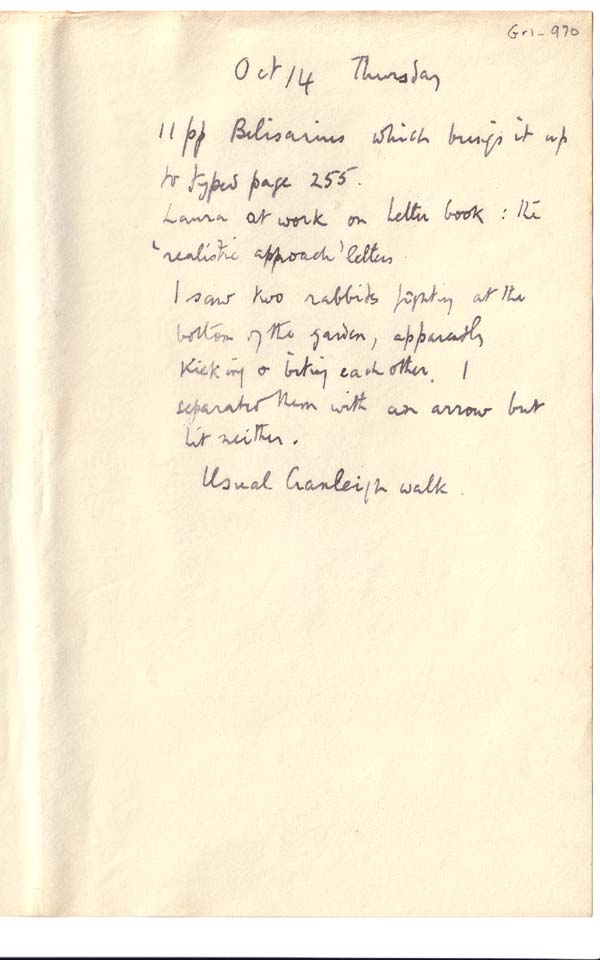 Gr1-970
Oct 14 Thursday
11 pp Belisarius which brings it up
to typed page 255.
Laura at work on letter book : the
'realistic approach' letters
I saw two rabbits fighting at the
bottom of the garden, apparently
kicking & biting each other. I
separated them with an arrow but
hit neither.
Usual Cranleigh walk.